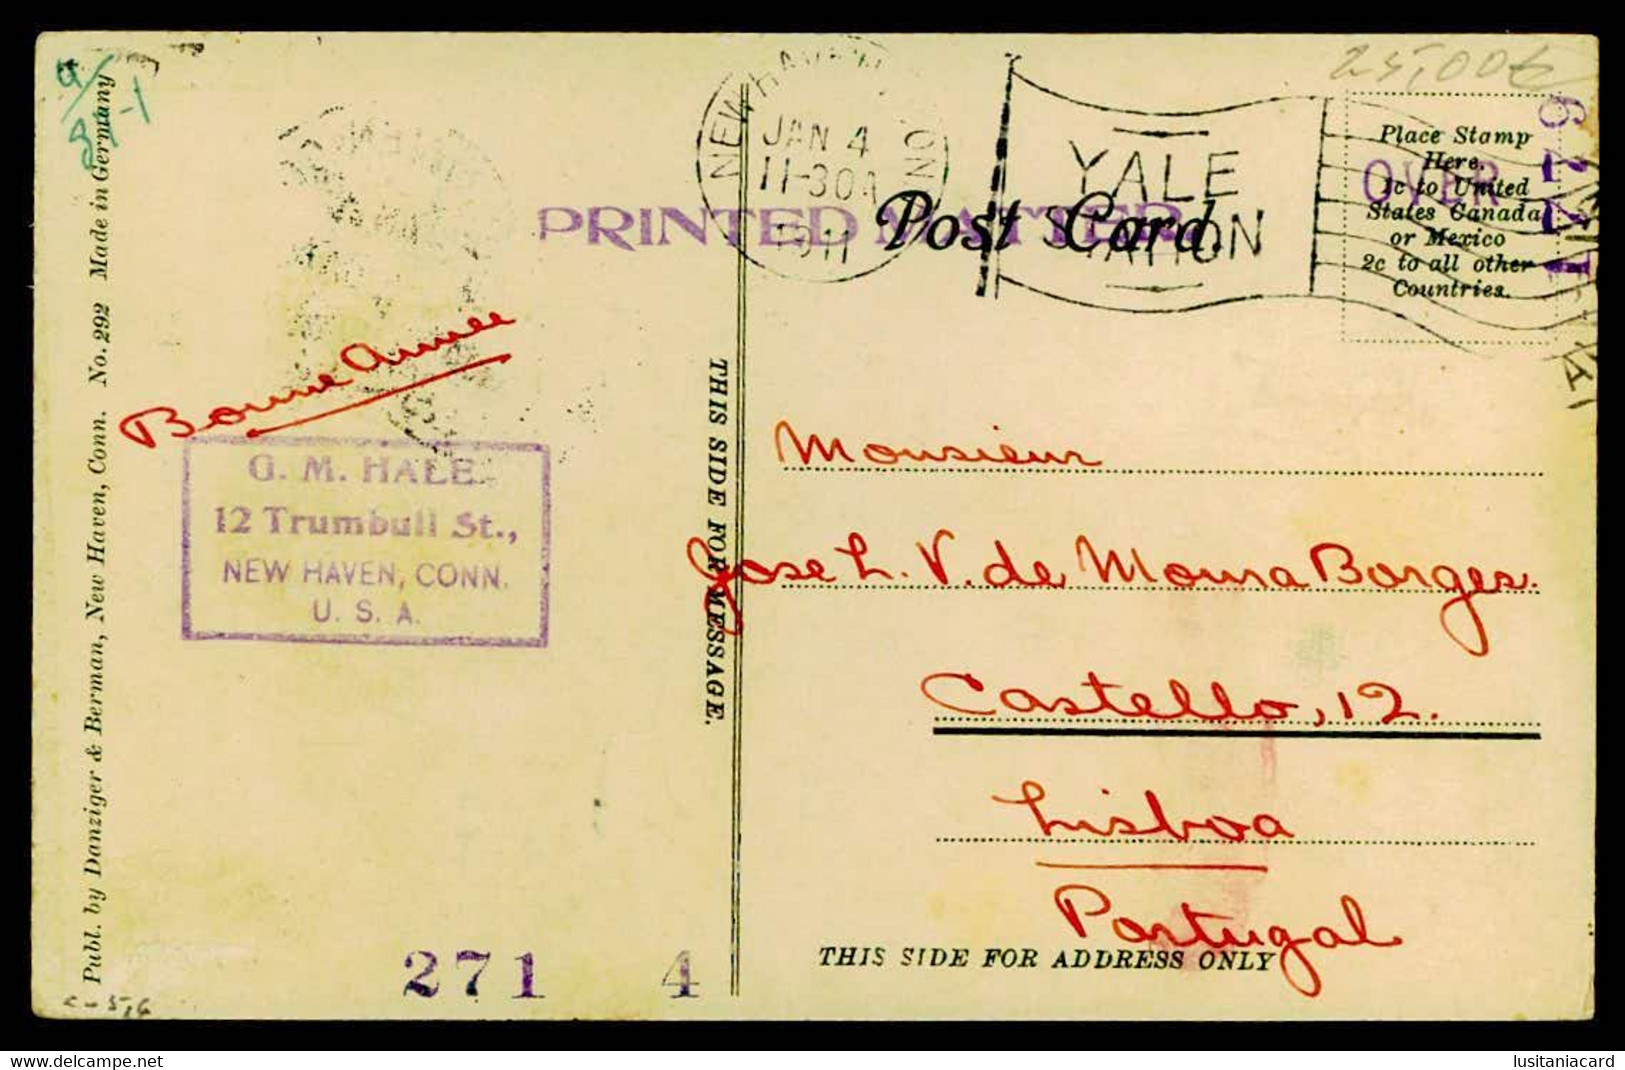 25,00€
NEW HAVEN
CONN
JAN 4
11-30A
1911
YALE
STATION
PRINTED MATTER
OVER
Post Card.
Place Stamp
Here.
1c to United
States Canada
or Mexico
2c to all other
Countries.
Bonne Année
G. M. HALE
12 Trumbull St.,
NEW HAVEN, CONN.
U. S. A.
Publ. by Danziger & Berman, New Haven, Conn. No. 292 Made in Germany
THIS SIDE FOR MESSAGE.
Monsieur
Jose L. V. de Moura Borges.
Castello, 12.
Lisboa
Portugal
THIS SIDE FOR ADDRESS ONLY
271 4
My eBay Picture
lusitaniacard